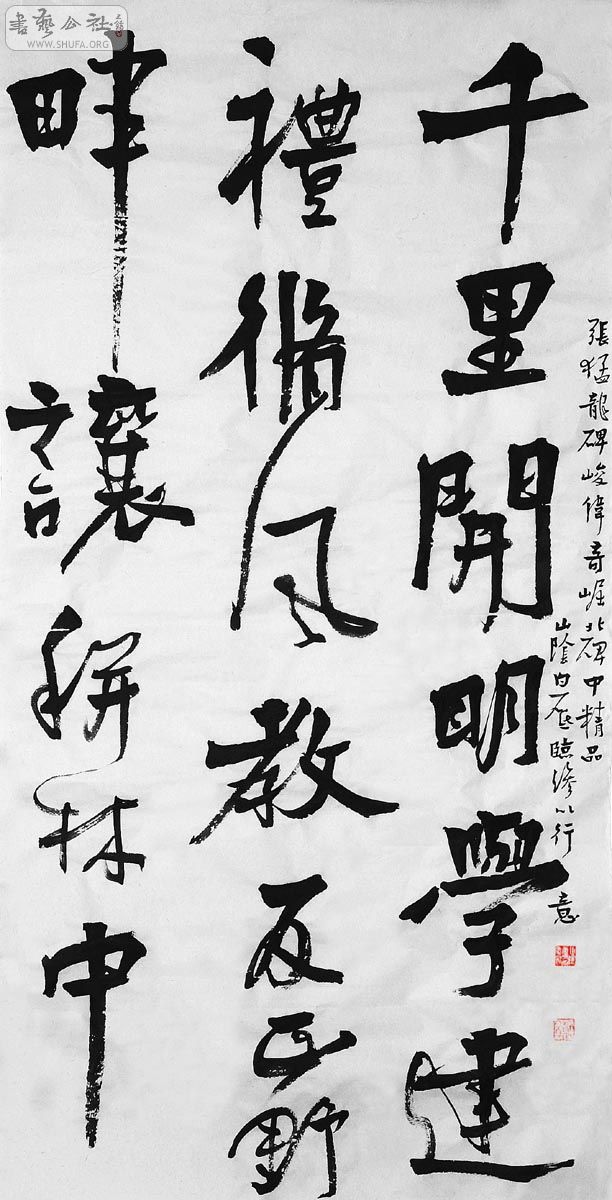 千里開明學建
禮脩風教反正野
畔讓耕林中
張猛龍碑峻偉奇崛北碑中精品
山陰白砥臨以行意
書藝公社
WWW.SHUFA.ORG